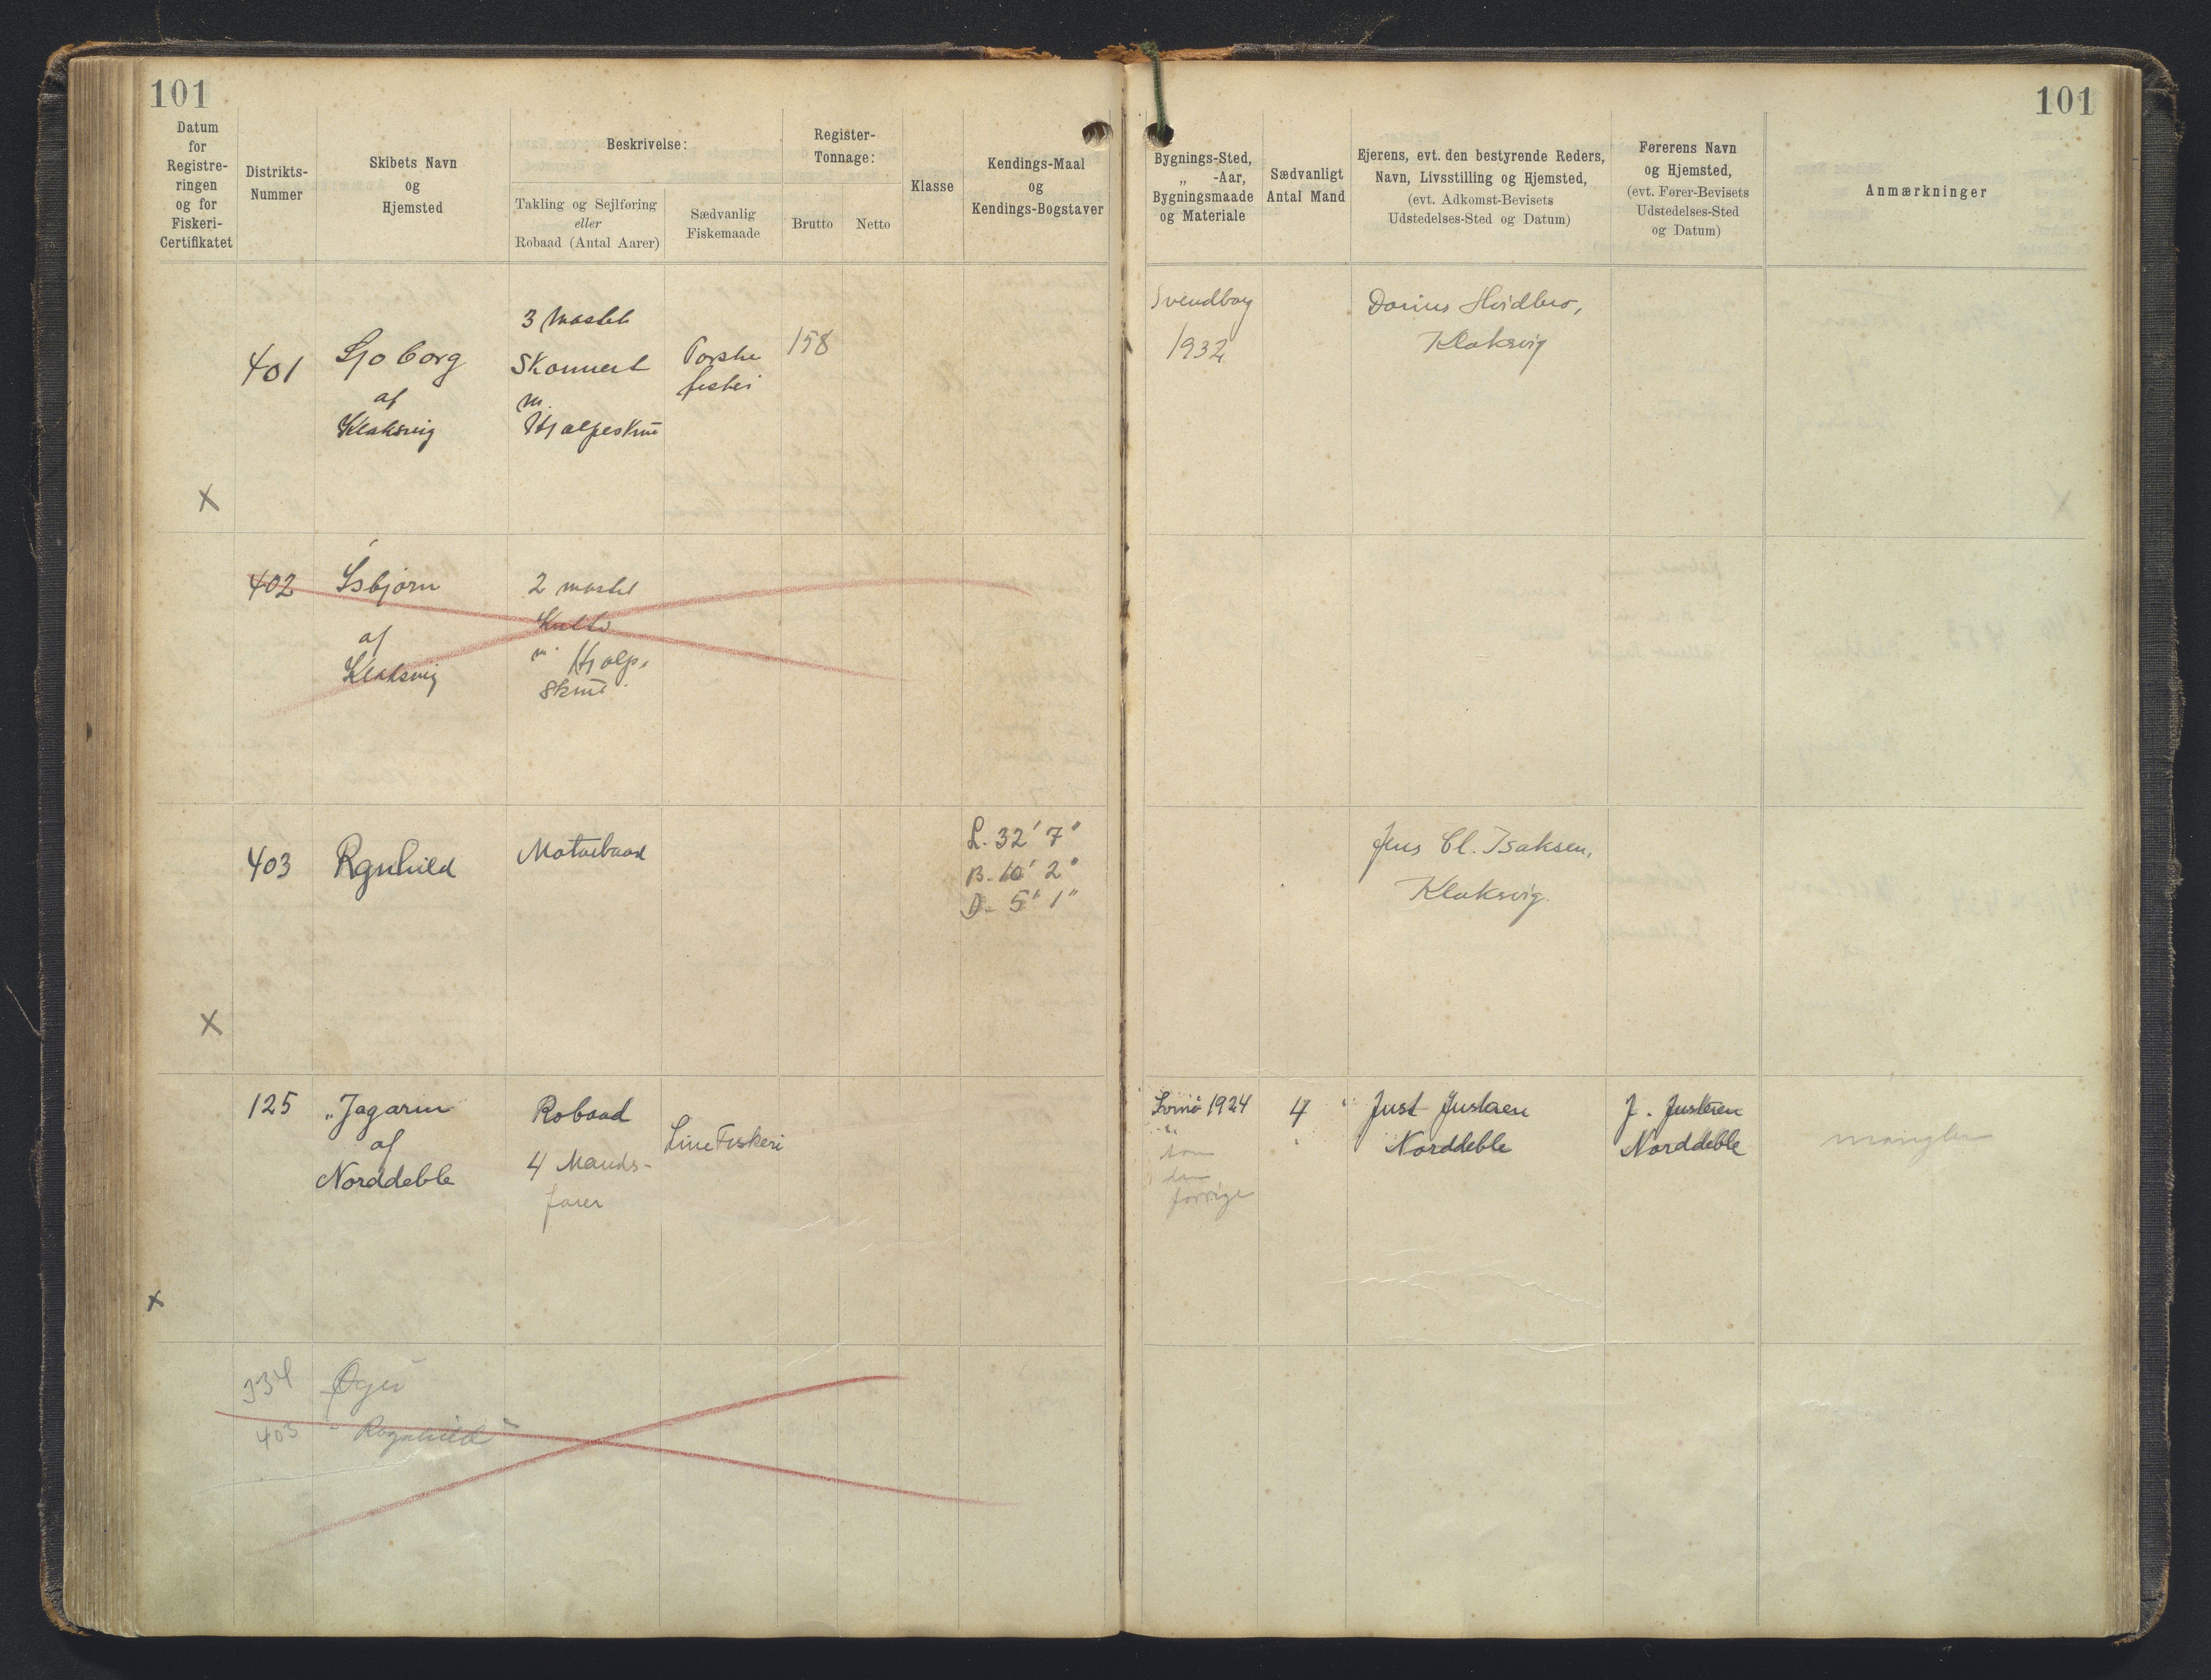 101
101
Datum
for
Registre-
ringen
og for
Fiskeri-
Certifikatet
Distrikts-
Nummer
Skibets Navn
og
Hjemsted
Beskrivelse:
Takling og Sejlføring
eller
Robaad (Antal Aarer)
Sædvanlig
Fiskemaade
Register-
Tonnage:
Brutto
Netto
Klasse
Kendings-Maal
og
Kendings-Bogstaver
Bygnings-Sted,
„ -Aar,
Bygningsmaade
og Materiale
Sædvanligt
Antal Mand
Ejerens, evt. den bestyrende Reders,
Navn, Livsstilling og Hjemsted,
(evt. Adkomst-Bevisets
Udstedelses-Sted og Datum)
Førerens Navn
og Hjemsted,
(evt. Fører-Bevisets
Udstedelses-Sted
og Datum)
Anmærkninger
X
401
Sjoborg
af
Klaksvig
3 Mastet
Skonnert
m.
Hjælpeskrue
Torske
fiskeri
158
Svendborg
1932
Dorius Hvidbro,
Klaksvig
402
Ísbjørn
af
Klaksvig
2 mastet
m. Hjælp.
Skrue
X
403
Rgnhild
Motorbaad
L. 32' 7"
B. 10' 2"
D. 5' 1"
Jens Cl. Isaksen,
Klaksvig.
x
125
"Jagarin
af
Norddeble
Robaad
4 Mands-
farer
Line Fiskeri
Svinø 1924
som
den
forrige
4
Just Justesen
Norddeble
J. Justesen
Norddeble
mangler
334
403 - Ragnhild -